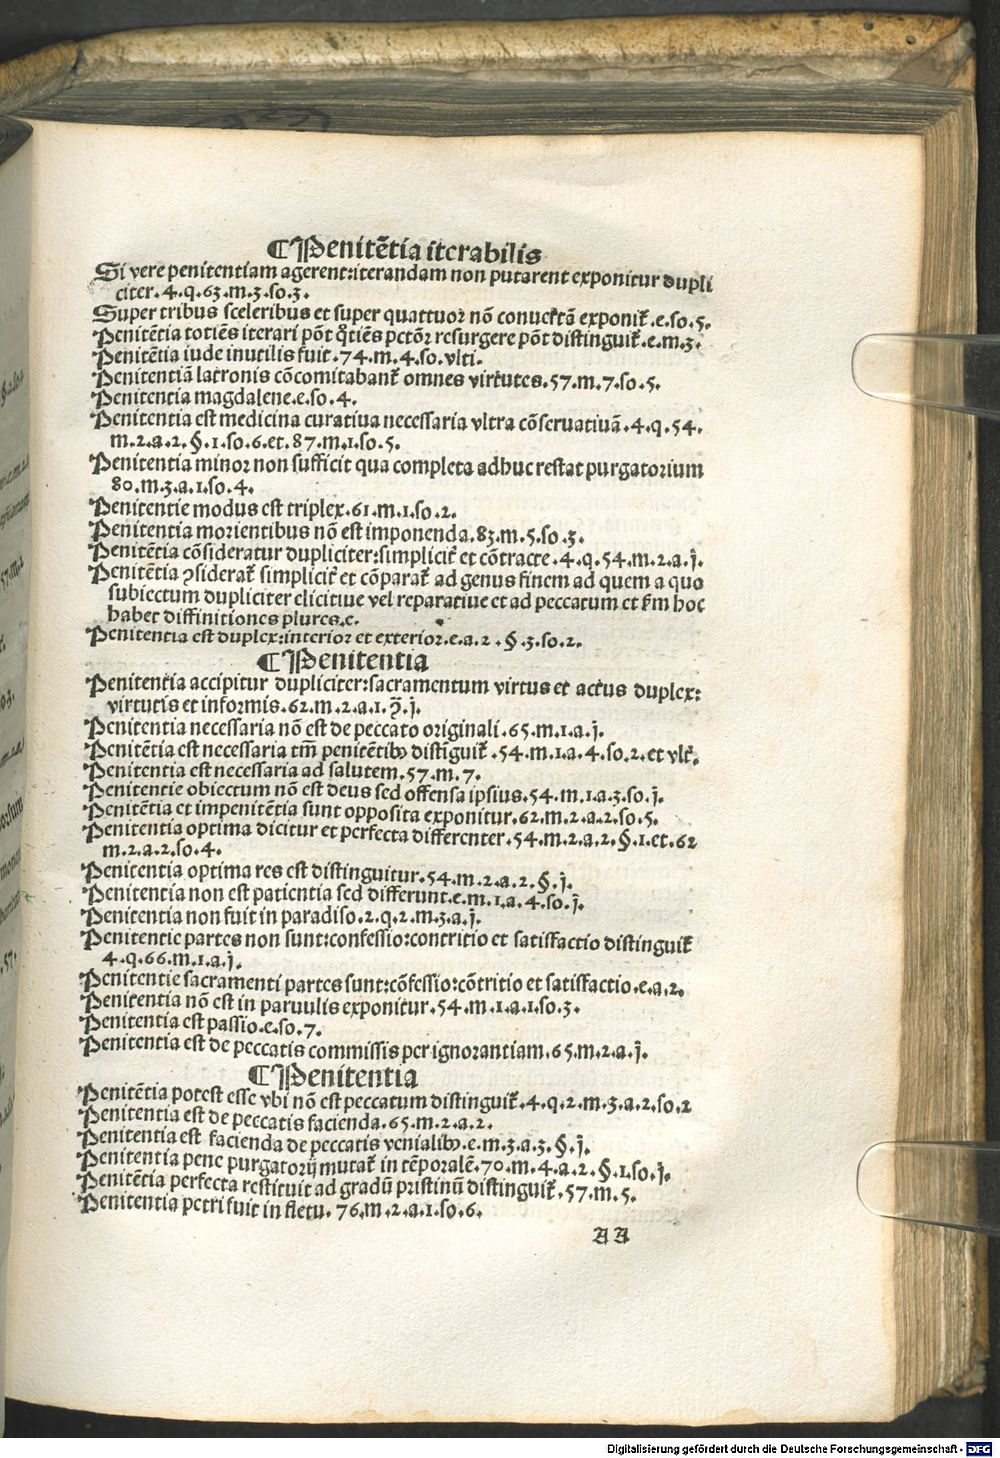 ¶Penitẽtia iterabilis
Si vere penitentiam agerent:iterandam non putarent exponitur dupli
citer.4.q.63.m.3.so.3.
Super tribus sceleribus et super quattuor nõ conuertã exponit᷑.e.so.5.
Penitẽtia totiẽs iterari põt q̃tiẽs pctõr resurgere põt distinguit᷑.e.m.3.
Penitẽtia iude inutilis fuit.74.m.4.so.vlti.
Penitentiã latronis cõcomitabant᷑ omnes virtutes.57.m.7.so.5.
Penitentia magdalene.e.so.4.
Penitentia est medicina curatiua necessaria vltra cõseruatiuã.4.q.54.
m.2.a.2.§.1.so.6.et.87.m.1.so.5.
Penitentia minor non sufficit qua completa adhuc restat purgatorium
80.m.3.a.1.so.4.
Penitentie modus est triplex.61.m.1.so.2.
Penitentia morientibus nõ est imponenda.83.m.5.so.3.
Penitẽtia cõsideratur dupliciter:simplicit᷑ et cõtracte.4.q.54.m.2.a.j.
Penitẽtia ꝯsiderat᷑ simplicit᷑ et cõparat᷑ ad genus finem ad quem a quo
subiectum dupliciter elicitiue vel reparatiue et ad peccatum et ẜm hoc
habet diffinitiones plures.e.
Penitentia est duplex:interior et exterior.e.a.2.§.3.so.2.
¶Penitentia
Penitentia accipitur dupliciter:sacramentum virtus et actus duplex:
virtutis et informis.62.m.2.a.1.q̃.j.
Penitentia necessaria nõ est de peccato originali.65.m.1.a.j.
Penitẽtia est necessaria tm̃ penitẽtibꝰ distĩguit᷑.54.m.1.a.4.so.2.et vlt᷑.
Penitentia est necessaria ad salutem.57.m.7.
Penitentie obiectum nõ est deus sed offensa ipsius.54.m.1.a.3.so.j.
Penitẽtia et impenitẽtia sunt opposita exponitur.62.m.2.a.2.so.5.
Penitentia optima dicitur et perfecta differenter.54.m.2.a.2.§.1.et.62
m.2.a.2.so.4.
Penitentia optima res est distinguitur.54.m.2.a.2.§.j.
Penitentia non est patientia sed differunt.e.m.1.a.4.so.j.
Penitentia non fuit in paradiso.2.q.2.m.3.a.j.
Penitentie partes non sunt:confessio:contritio et satisfactio distinguit᷑
4.q.66.m.1.a.j.
Penitentie sacramenti partes sunt:cõfessio:cõtritio et satisfactio.e.a.2.
Penitentia nõ est in paruulis exponitur.54.m.1.a.1.so.3.
Penitentia est passio.e.so.7.
Penitentia est de peccatis commissis per ignorantiam.65.m.2.a.j.
¶Penitentia
Penitẽtia potest esse vbi nõ est peccatum distinguit᷑.4.q.2.m.3.a.2.so.2
Penitentia est de peccatis facienda.65.m.2.a.2.
Penitentia est facienda de peccatis venialibꝰ.e.m.3.a.3.§.j.
Penitentia pene purgatorij mutat᷑ in tẽporalẽ.70.m.4.a.2.§.1.so.j.
Penitẽtia perfecta restituit ad gradũ pristinũ distinguit᷑.57.m.5.
Penitentia petri fuit in fletu.76.m.2.a.1.so.6.
AA
Digitalisierung gefördert durch die Deutsche Forschungsgemeinschaft - DFG